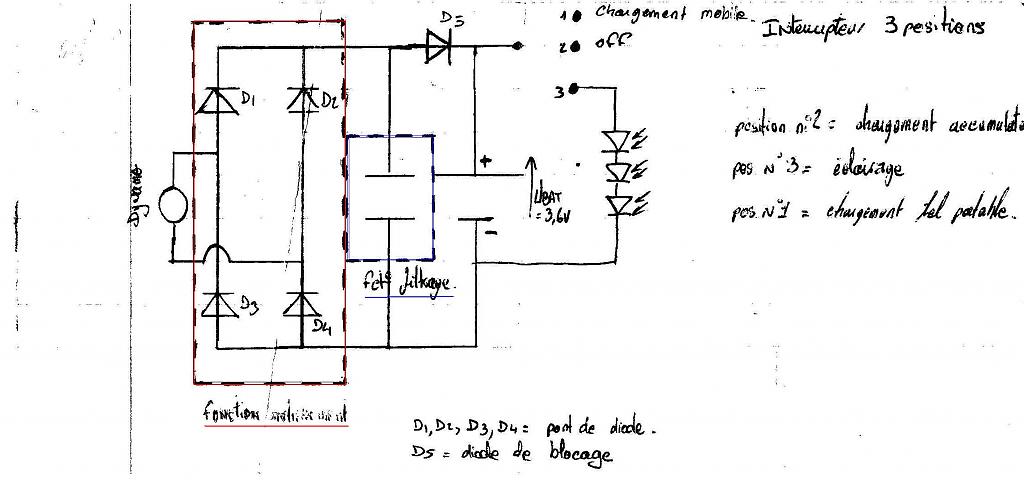 D5
1 Chargement mobile.
Interrupteur 3 positions
2 off
3
D1
D2
position n°2 = chargement accumulate
pos N°3 = éclairage
pos N°1 = chargement tel portable.
Dynamo
+
UBAT
= 3,6V
-
fct° filtrage.
D3
D4
fonction
D1, D2, D3, D4 = pont de diode.
D5 = diode de blocage